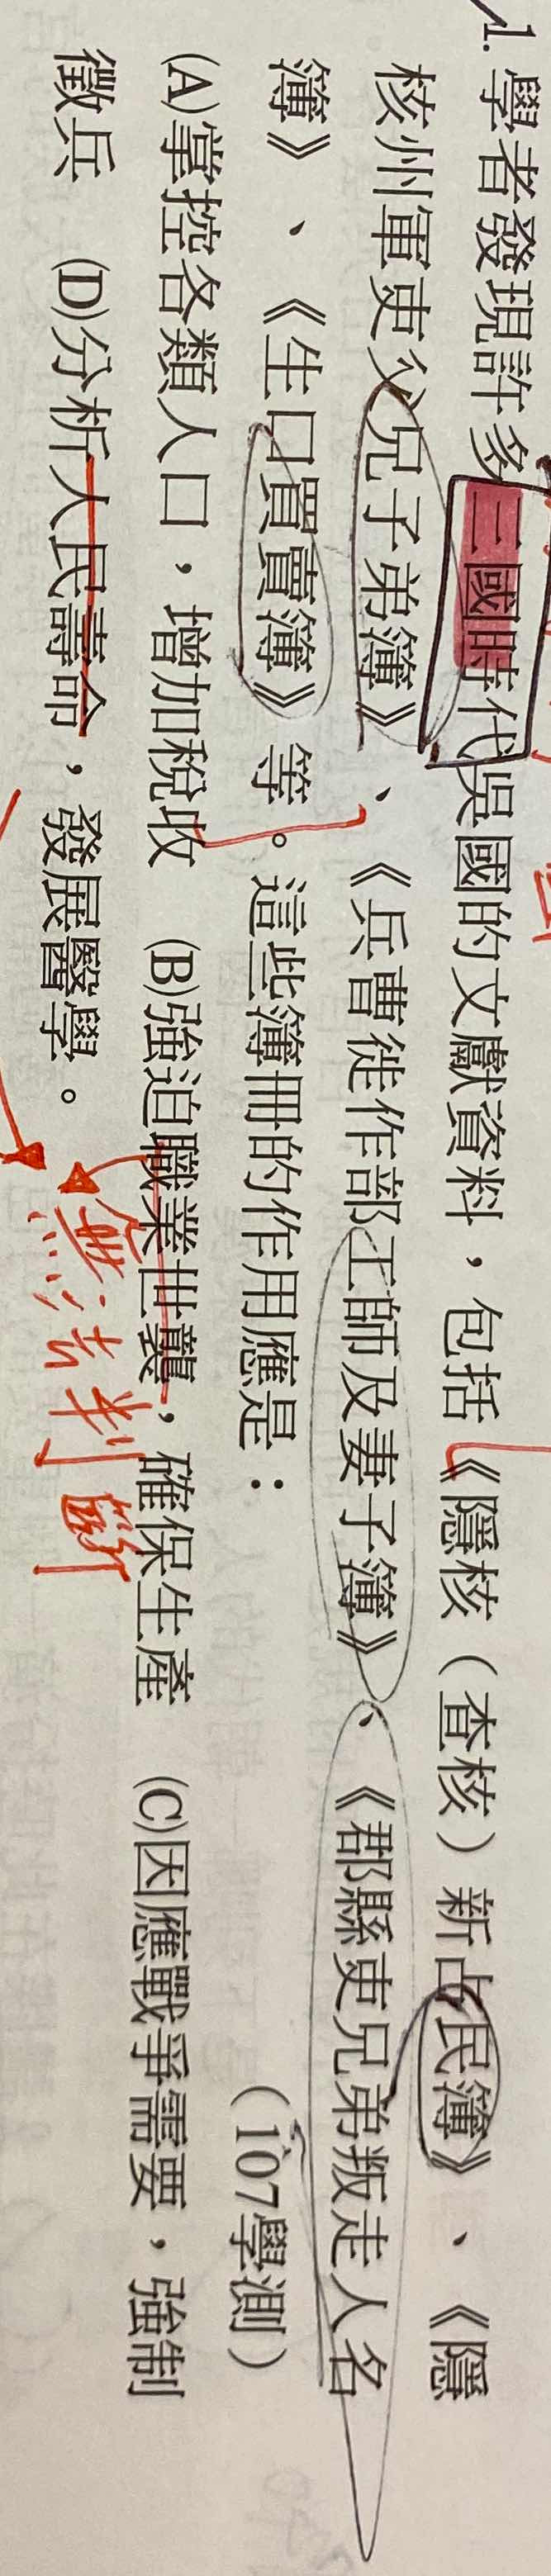 1. 學者發現許多三國時代吳國的文獻資料，包括《隱核（查核）新占民簿》、《隱
核州軍吏父兄子弟簿》、《兵曹徒作部工師及妻子簿》、《郡縣吏兄弟叛走人名
簿》、《生口買賣簿》等。這些簿冊的作用應是：（107學測）
(A)掌控各類人口，增加稅收 (B)強迫職業世襲，確保生產 (C)因應戰爭需要，強制
徵兵 (D)分析人民壽命，發展醫學。
無法判斷